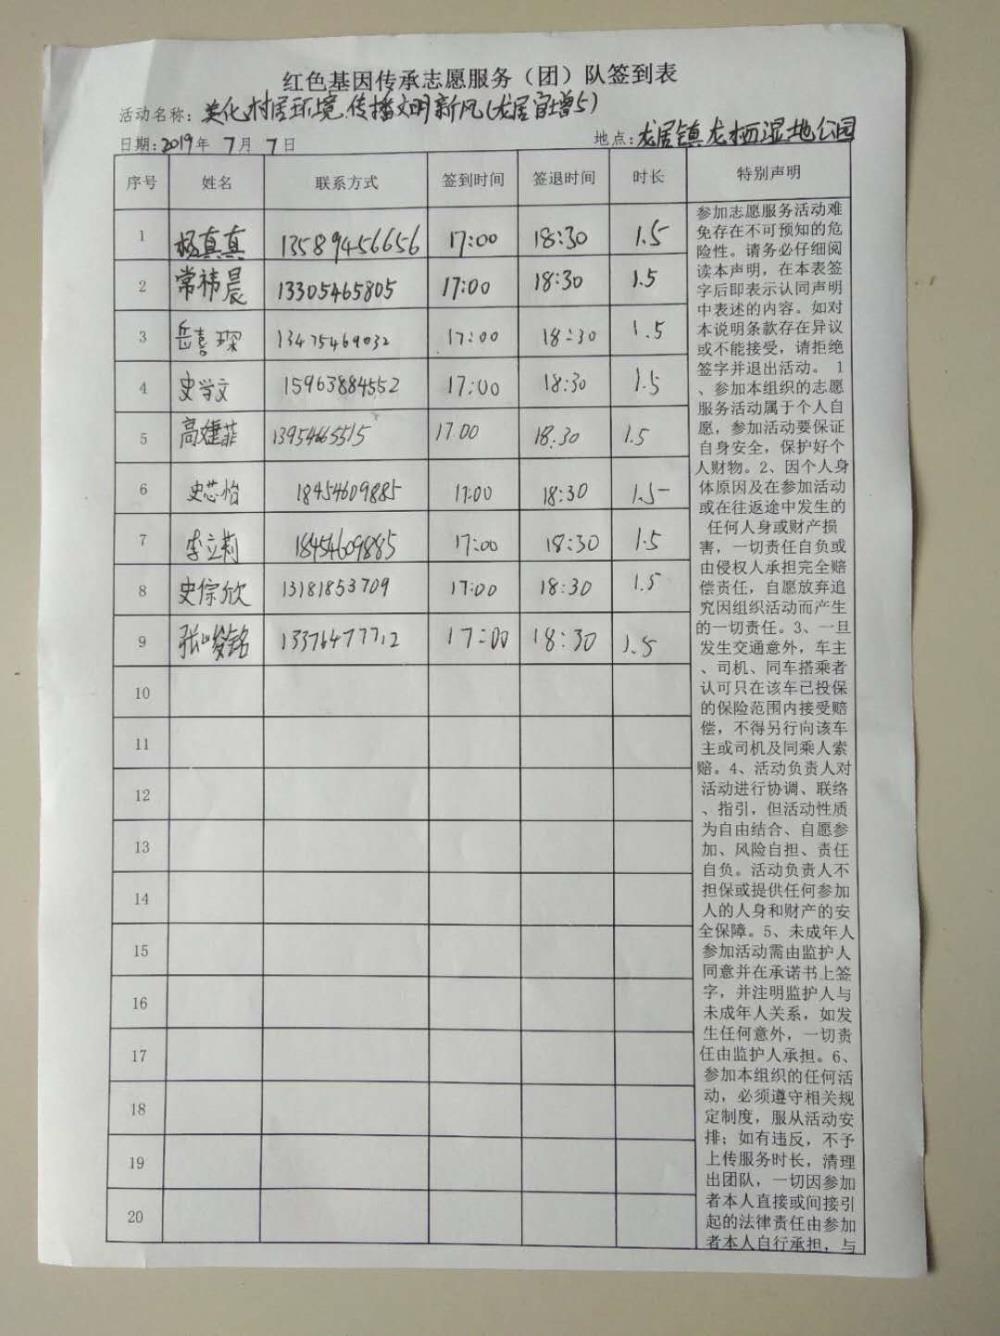 红色基因传承志愿服务（团）队签到表
活动名称：美化村居环境,传播文明新风(龙居宣增5)
日期：2019年 7月 7日 地点：龙居镇龙栖湿地公园
序号 姓名 联系方式 签到时间 签退时间 时长 特别声明
1 杨真真 13589456656 17:00 18:30 1.5
2 常祎晨 13305465805 17:00 18:30 1.5
3 岳喜琛 13475469032 17:00 18:30 1.5
4 史学文 15963884552 17:00 18:30 1.5
5 高婕菲 13954665515 17:00 18:30 1.5
6 史芯怡 18454609885 17:00 18:30 1.5
7 李立莉 18454609885 17:00 18:30 1.5
8 史倧欣 13181853709 17:00 18:30 1.5
9 张峻铭 13376477712 17:00 18:30 1.5
10
11
12
13
14
15
16
17
18
19
20
参加志愿服务活动难
免存在不可预知的危
险性。请务必仔细阅
读本声明，在本表签
字后即表示认同声明
中表述的内容。如对
本说明条款存在异议
或不能接受，请拒绝
签字并退出活动。 1
、参加本组织的志愿
服务活动属于个人自
愿，参加活动要保证
自身安全，保护好个
人财物。2、因个人身
体原因及在参加活动
或在往返途中发生的
任何人身或财产损
害，一切责任自负或
由侵权人承担完全赔
偿责任，自愿放弃追
究因组织活动而产生
的一切责任。3、一旦
发生交通意外，车主
、司机、同车搭乘者
认可只在该车已投保
的保险范围内接受赔
偿，不得另行向该车
主或司机及同乘人索
赔。4、活动负责人对
活动进行协调、联络
、指引，但活动性质
为自由结合、自愿参
加、风险自担、责任
自负。活动负责人不
担保或提供任何参加
人的人身和财产的安
全保障。5、未成年人
参加活动需由监护人
同意并在承诺书上签
字，并注明监护人与
未成年人关系，如发
生任何意外，一切责
任由监护人承担。6、
参加本组织的任何活
动，必须遵守相关规
定制度，服从活动安
排；如有违反，不予
上传服务时长，清理
出团队，一切因参加
者本人直接或间接引
起的法律责任由参加
者本人自行承担，与